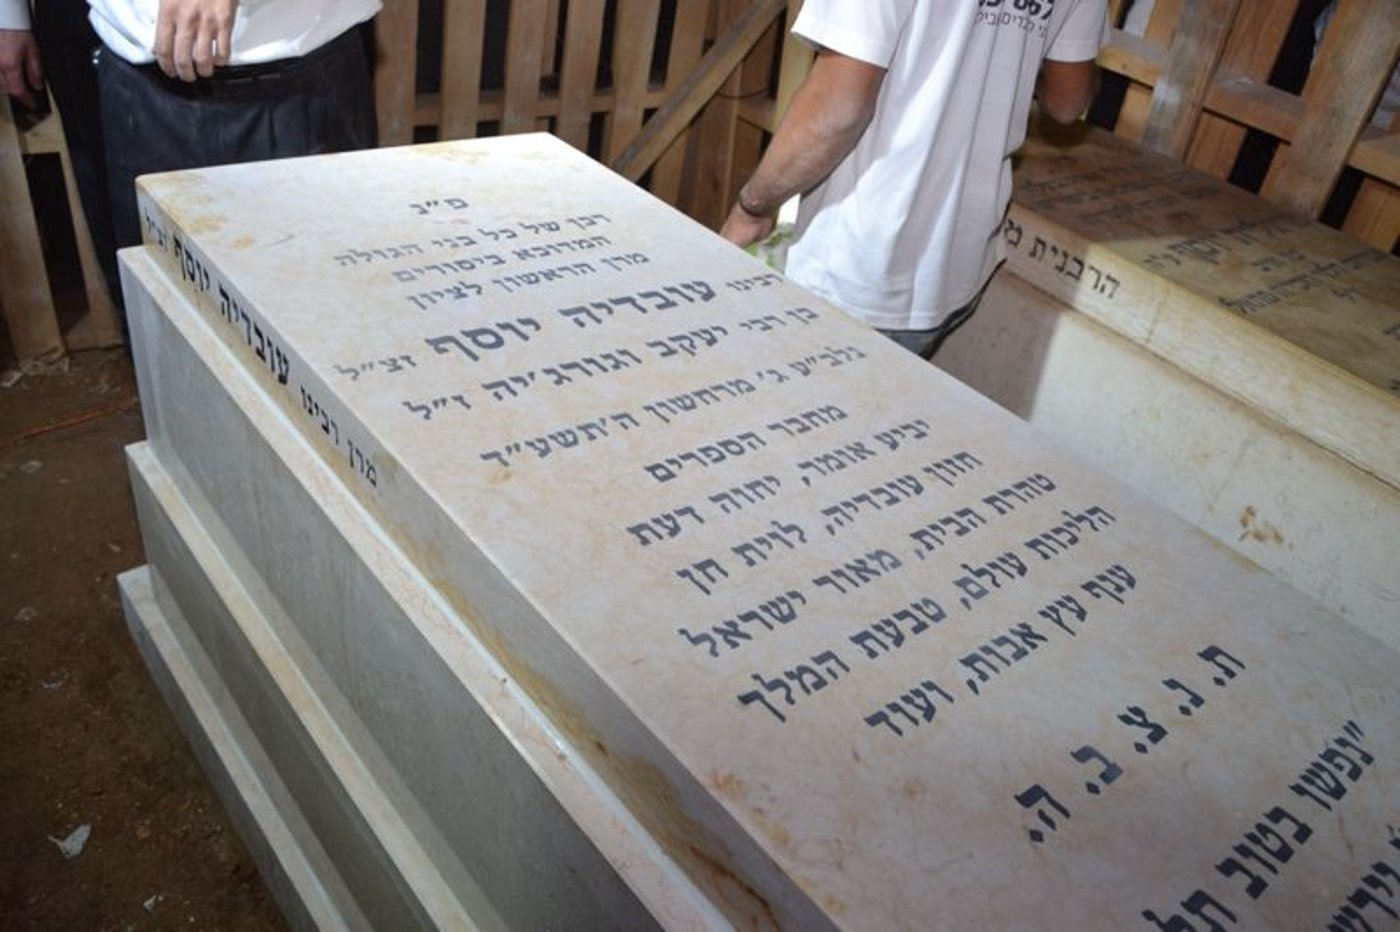 פ״נ
רבן של כל בני הגולה
המדוכא ביסורים
מרן הראשון לציון
רבינו עובדיה יוסף זצ״ל
בן רבי יעקב וגורג׳יה ז״ל
נלב״ע ג׳ מרחשון ה׳תשע״ד
מחבר הספרים
יביע אומר, יחוה דעת
חזון עובדיה, לוית חן
טהרת הבית, מאור ישראל
הליכות עולם, טבעת המלך
ענף עץ אבות, ועוד
ת. נ. צ. ב. ה.
״נפשו בטוב תל
מרן רבינו עובדיה יוסף זצ״ל
הרבנית